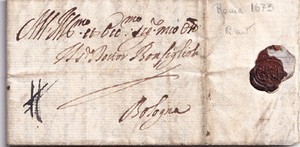 All Ill.mo et Ecc.mo Sig.r mio
Il S.r Dottor Bonfiglioli
Bologna
Roma 1673